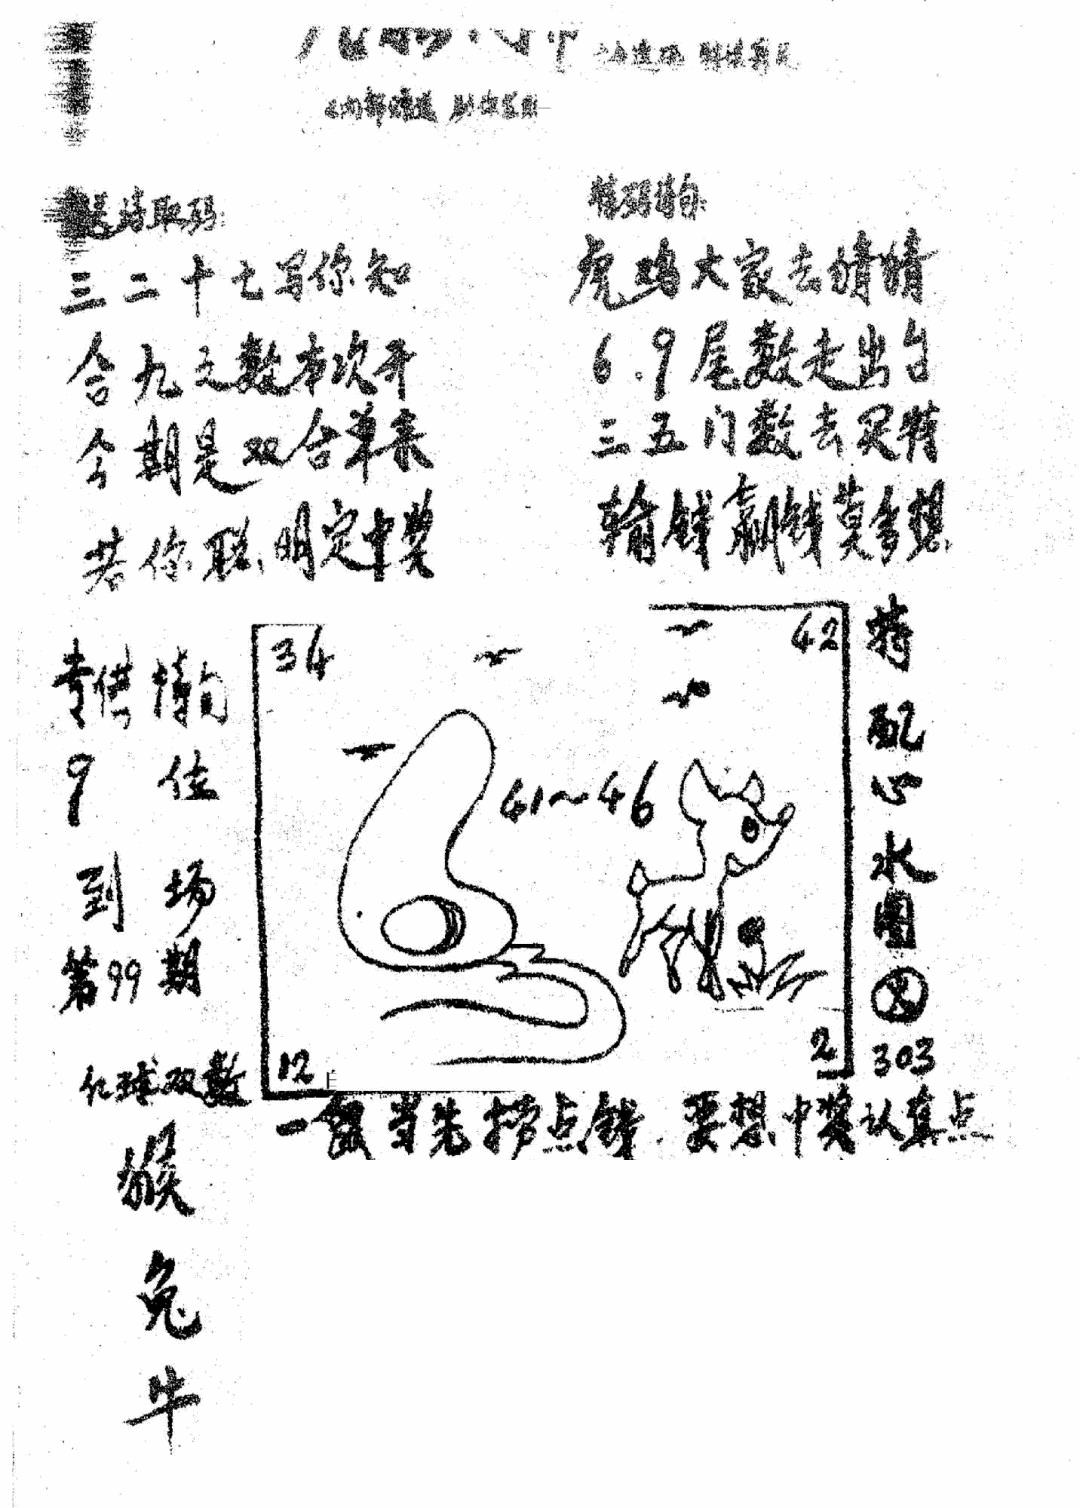 三二十七写你知
合九之数本次开
今期是双合单来
若你聪明定中奖
特码诗句:
虎鸡大家去猜猜
6.9尾数走出台
三五门数去买特
输钱赢钱莫多想
专供诗句
9 位
到 场
第99期
红球双数
猴
兔
牛
34
42
41~46
12
2
特配心水图
303
一鼠当先捞点钱.要想中奖认真点